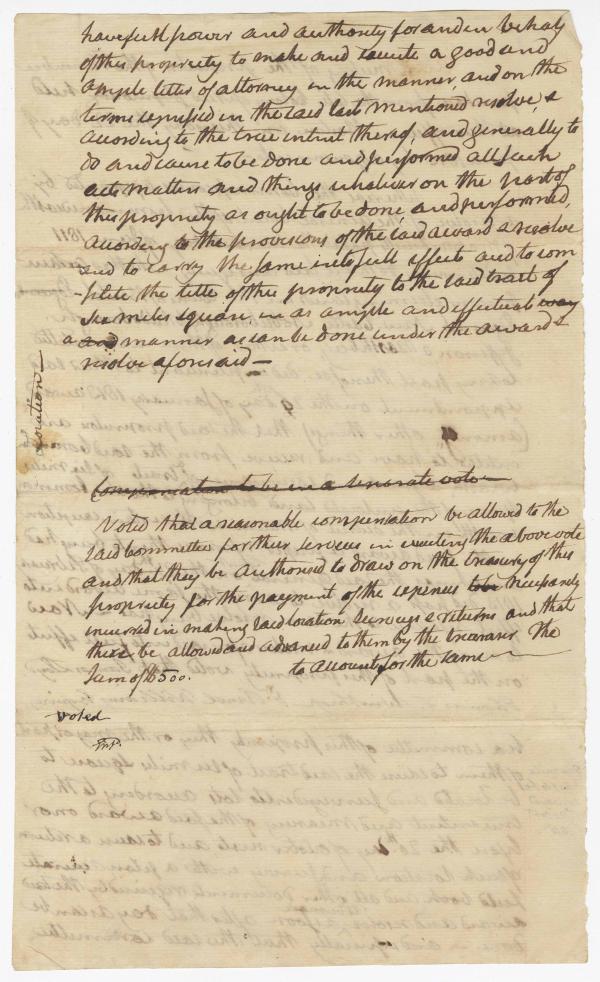 have full power and authority for and in behalf
of this propriety to make and execute a good and
ample letter of attorney in the manner, and on the
terms expressed in the said last mentioned resolve, &
according to the true intent thereof, and generally to
do and cause to be done and performed all such
acts matters and things whatever on the part of
this propriety as ought to be done, and performed,
according to the provisions of the said award & resolve
and to carry the same into full effect and to com
-plete the title of this propriety to the said tract of
six miles square, in as ample and effectual way
a and manner as can be done under the award &
resolve aforesaid —
location —
Compensation to be in a separate vote
Voted that a reasonable compensation be allowed to the
said Committee for their services in executing the above vote
and that they be authorised to draw on the treasury of this
propriety for the payment of the expences to be necessarily
incurred in making said location surveys & returns and that
there be allowed and advanced to them by the treasurer The
Sum of $500. to account for the same
Voted